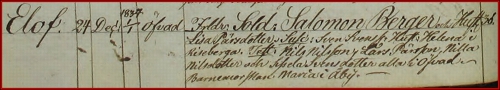 Elof. 24 Dec. 1834 1/1 Öfvad Föräldr. Sold. Salomon Berger och Hust.
Lisa Larsdotter. Susc: Sven Svenss. Hust. Helena i
Näsberga. Test: Nils Nilsson, Lars Pärsson, Nilla
Nilsdotter och Sissela Svensdotter alla i Öfvad
Barnemorskan Maria i Åby.